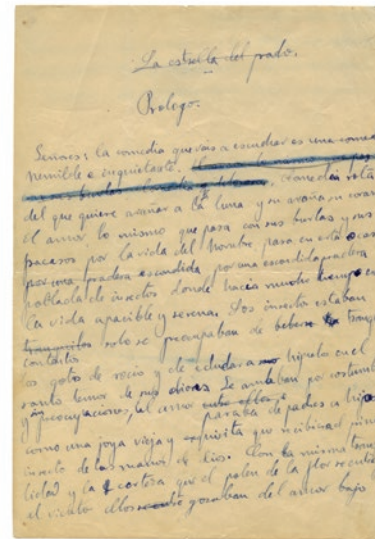 La estrella del prado.
Prologo.
Señores: la comedia que vais a escuchar es una come
humilde e inquietante. comedia rota
del que quiere arañar a la luna y se araña su coraz
El amor lo mismo que pasa con sus burlas y sus
fracasos por la vida del hombre pasa en esta ocas
por una pradera escondida por una escondida pradera
poblada de insectos donde hacia mucho tiempo er
la vida apacible y serena. Los insectos estaban
tranquilos solo se preocupaban de beber tranq
contentos
as gotas de rocio y de educar a sus hijuelos en el
santo temor de sus dioses. Se amaban por costumb
y sin preocupaciones, el amor entre ellos pasaba de padres a hijos
como una joya vieja y exquisita que recibiera el prim
insecto de las manos de Dios. Con la misma tranqui
lidad y la certeza que el polen de la flor se entre
al viento ellos gozaban del amor bajo